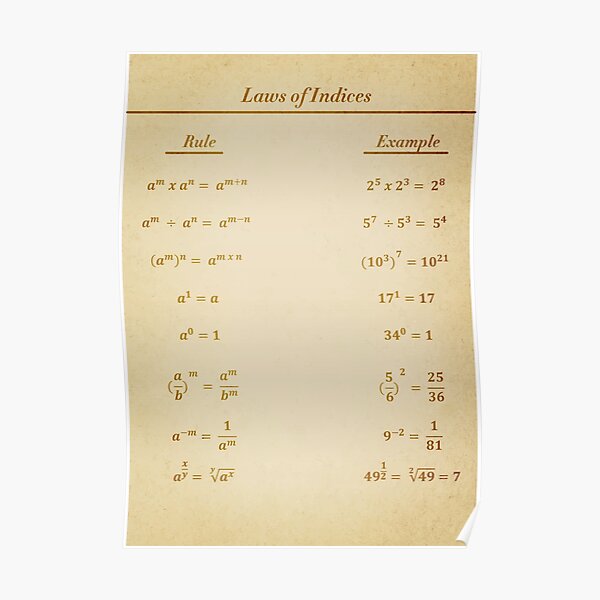 Laws of Indices
Rule Example
aᵐ x aⁿ = aᵐ⁺ⁿ 2⁵ x 2³ = 2⁸
aᵐ ÷ aⁿ = aᵐ⁻ⁿ 5⁷ ÷ 5³ = 5⁴
(aᵐ)ⁿ = aᵐ ˣ ⁿ (10³)⁷ = 10²¹
a¹ = a 17¹ = 17
a⁰ = 1 34⁰ = 1
(a/b)ᵐ = aᵐ/bᵐ (5/6)² = 25/36
a⁻ᵐ = 1/aᵐ 9⁻² = 1/81
a^(x/y) = ʸ√aˣ 49^(1/2) = ²√49 = 7